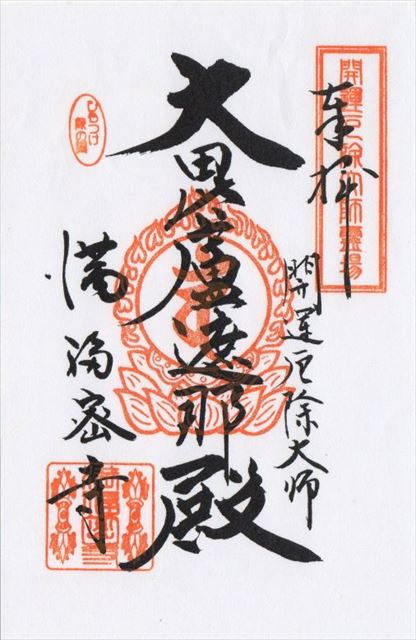 奉拝
開運厄除大師
大毘盧遮那殿
満福密寺
開運厄除大師霊場